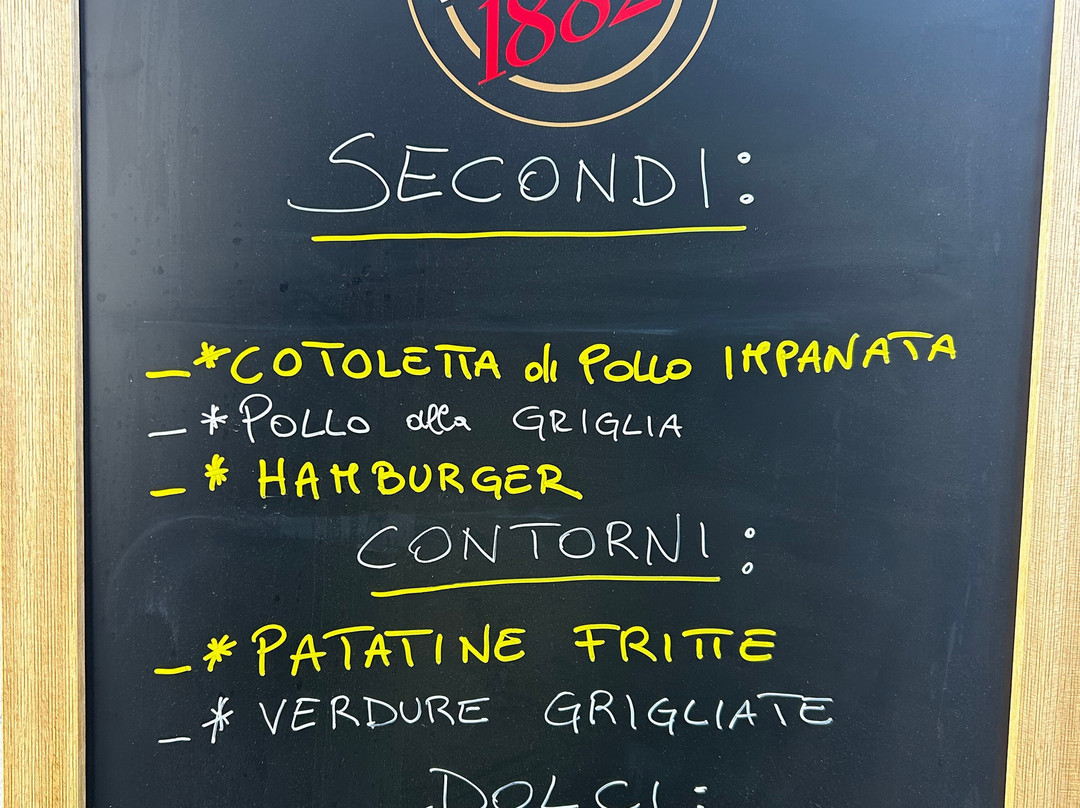 1882
SECONDI:
_ * COTOLETTA di POLLO IMPANATA
_ * POLLO alla GRIGLIA
_ * HAMBURGER
CONTORNI:
_ * PATATINE FRITTE
_ * VERDURE GRIGLIATE
DOLCI: